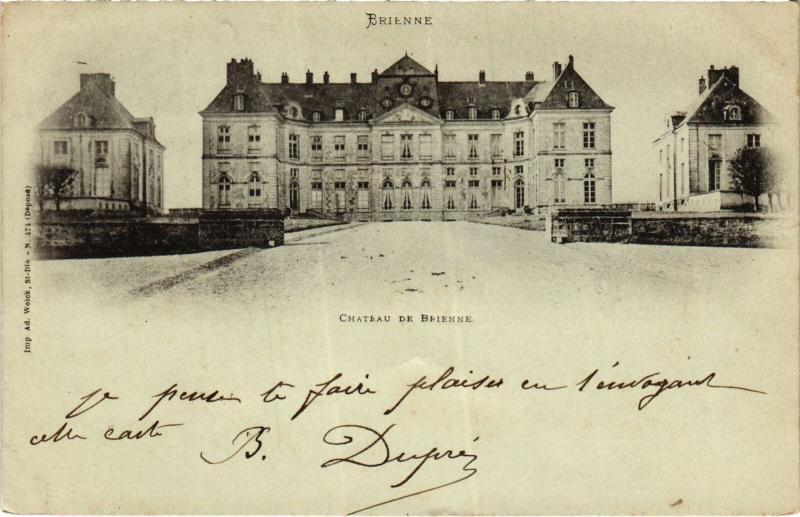 BRIENNE
Imp Ad. Weick, St-Dié - N. 474 (Déposé)
CHATEAU DE BRIENNE.
je pense te faire plaisir en t'envoyant
cette carte
B. Dupré